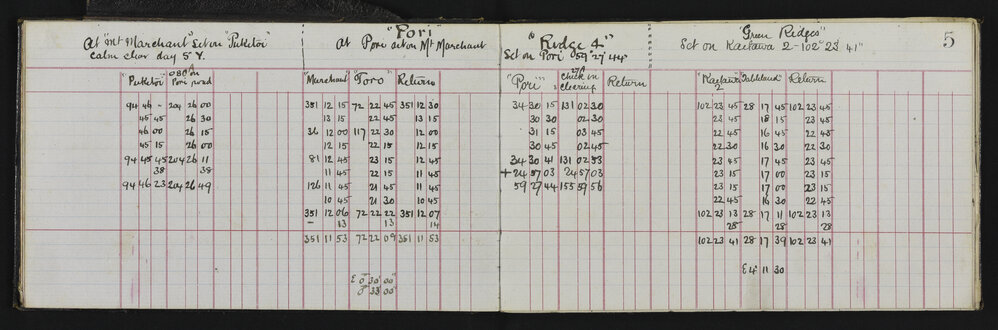 5
"Pori"
At "Mt Marchant" Set on "Puketoi"
calm clear day
At Pori set on Mt Marchant
"Ridge 4"
Set on Pori 59° 27' 44"
"Green Ridges"
Set on Kaitawa 2 - 102° 23' 41"
"Puketoi" Pori
"Marchant" "Toro" Return
"Pori" Check on Clearing Return
"Kaitawa 2" Return
94 46 - 204 26 00
45 45 26 30
46 00 26 15
45 15 26 00
94 45 45 204 26 11
38 38
94 46 23 204 26 49
351 12 15 72 22 45 351 12 30
13 15 22 45 13 15
36 12 00 117 22 30 12 00
12 15 22 15 12 15
81 12 45 23 15 12 45
11 45 22 15 11 45
126 11 45 21 45 11 45
10 45 21 30 10 45
351 12 06 72 22 22 351 12 07
- 13 13 14
351 11 53 72 22 09 351 11 53
E 0° 30' 00"
0° 33' 00"
34 30 15 131 02 30
30 30 02 30
31 15 03 45
30 45 02 45
34 30 41 131 02 53
+ 24 57 03 24 57 03
59 27 44 155 59 56
102 23 45 28 17 45 102 23 45
23 45 18 15 23 45
22 45 16 45 22 45
22 30 16 30 22 30
23 45 17 45 23 45
23 15 17 00 23 15
23 15 17 00 23 15
22 45 16 30 22 45
102 23 13 28 17 11 102 23 13
28 28 28
102 23 41 28 17 39 102 23 41
E 4 11 30